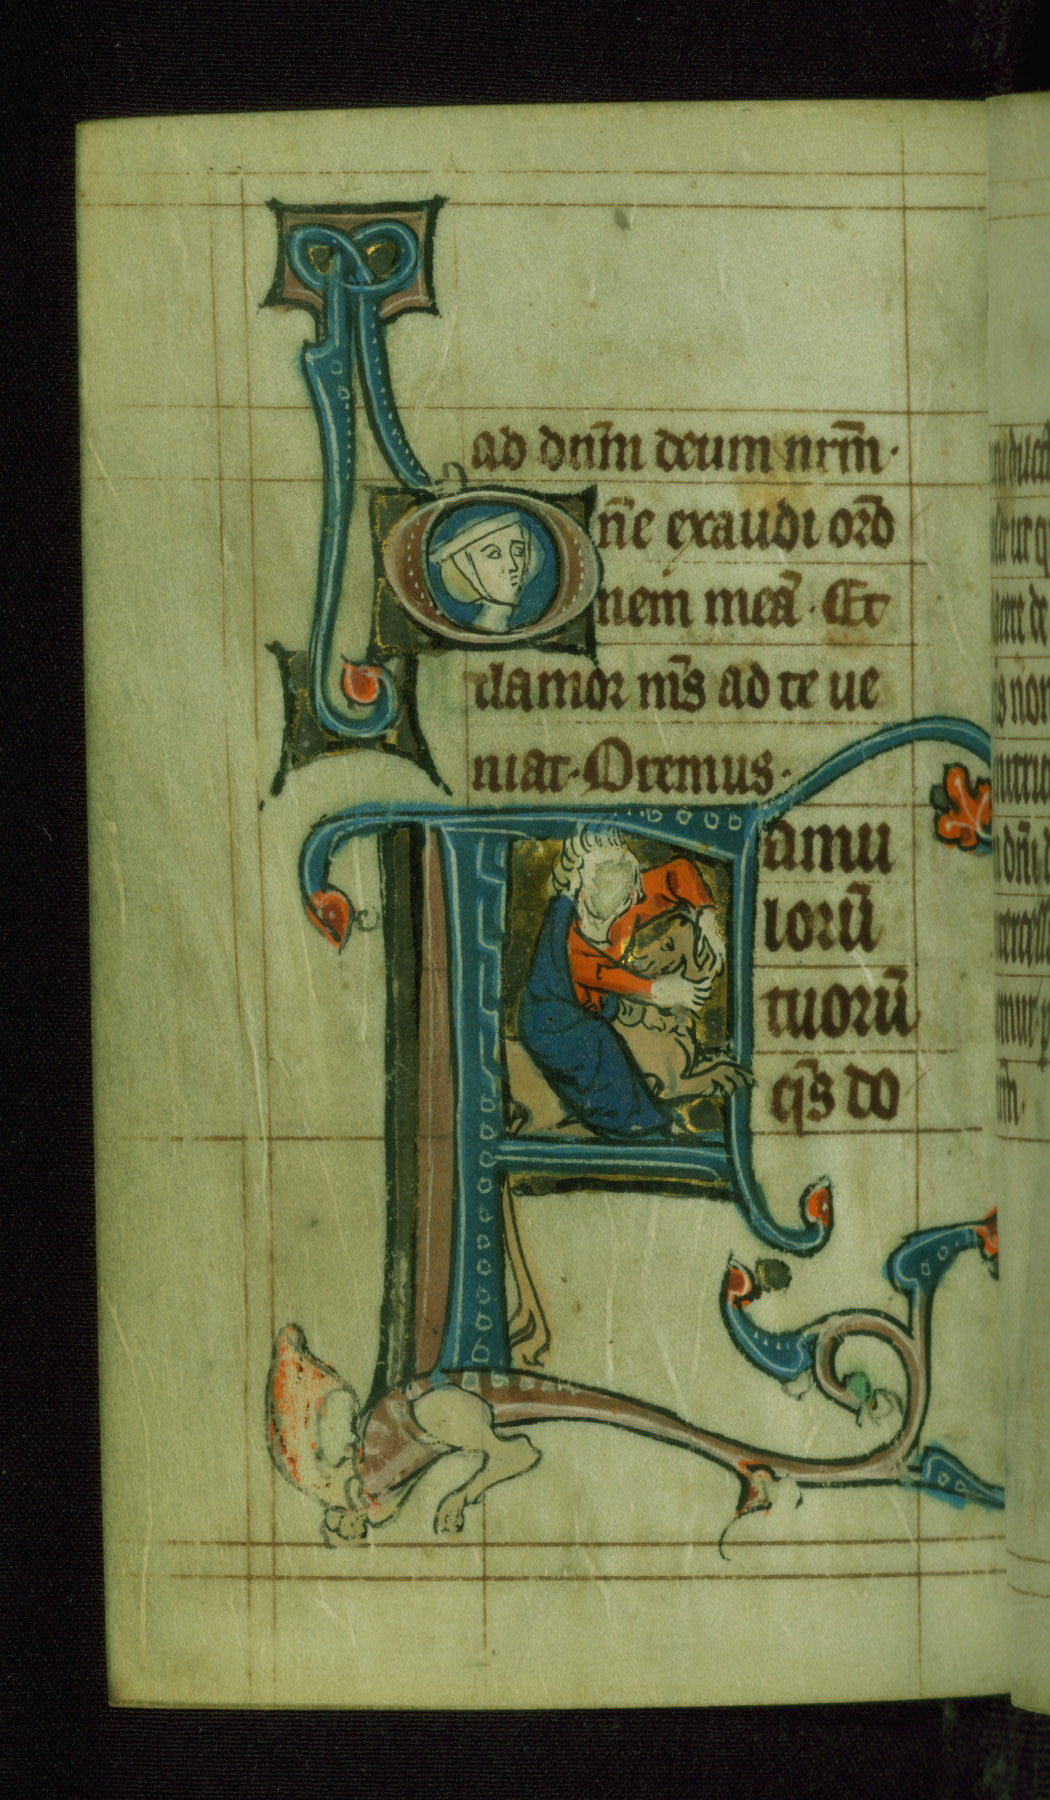 ad dnm̄ deum nrm̄·
Dn̄e exaudi or̄o
nem meā· Et
clamor m̄s ad te ue
niat· Oremus·
Famu
lorū
tuorū
qs̄ do